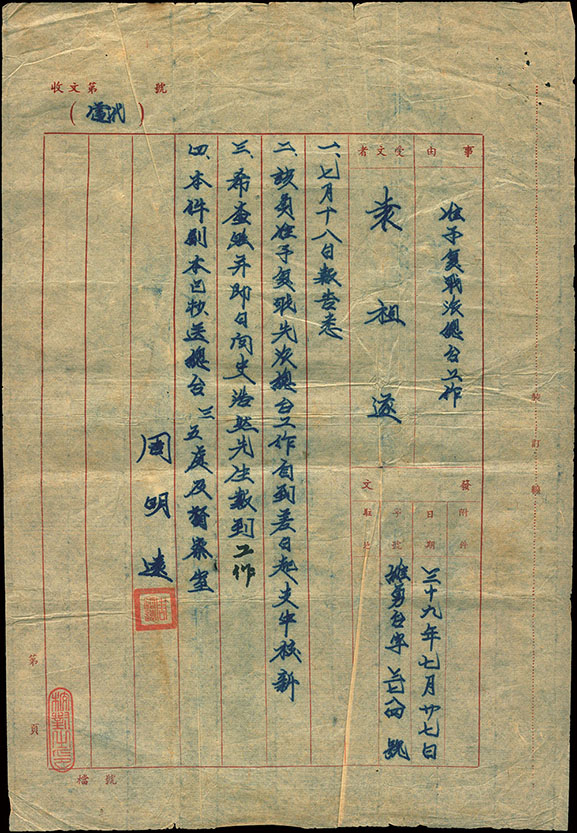 收文第 號
(代電)
事由
准予复職派總台工作
受文者
袁祖遂
發文
附件
日期
三十九年七月廿七日
字號
雄勇台字 號
一、七月十八日報告悉
二、該員准予复職先派總台工作自到差日起支 核薪
三、希查照并即日向史浩然先生報到工作
四、本件副本已抄送總台 三五處及督察室
周明遠
裝訂線
第 頁
檔號